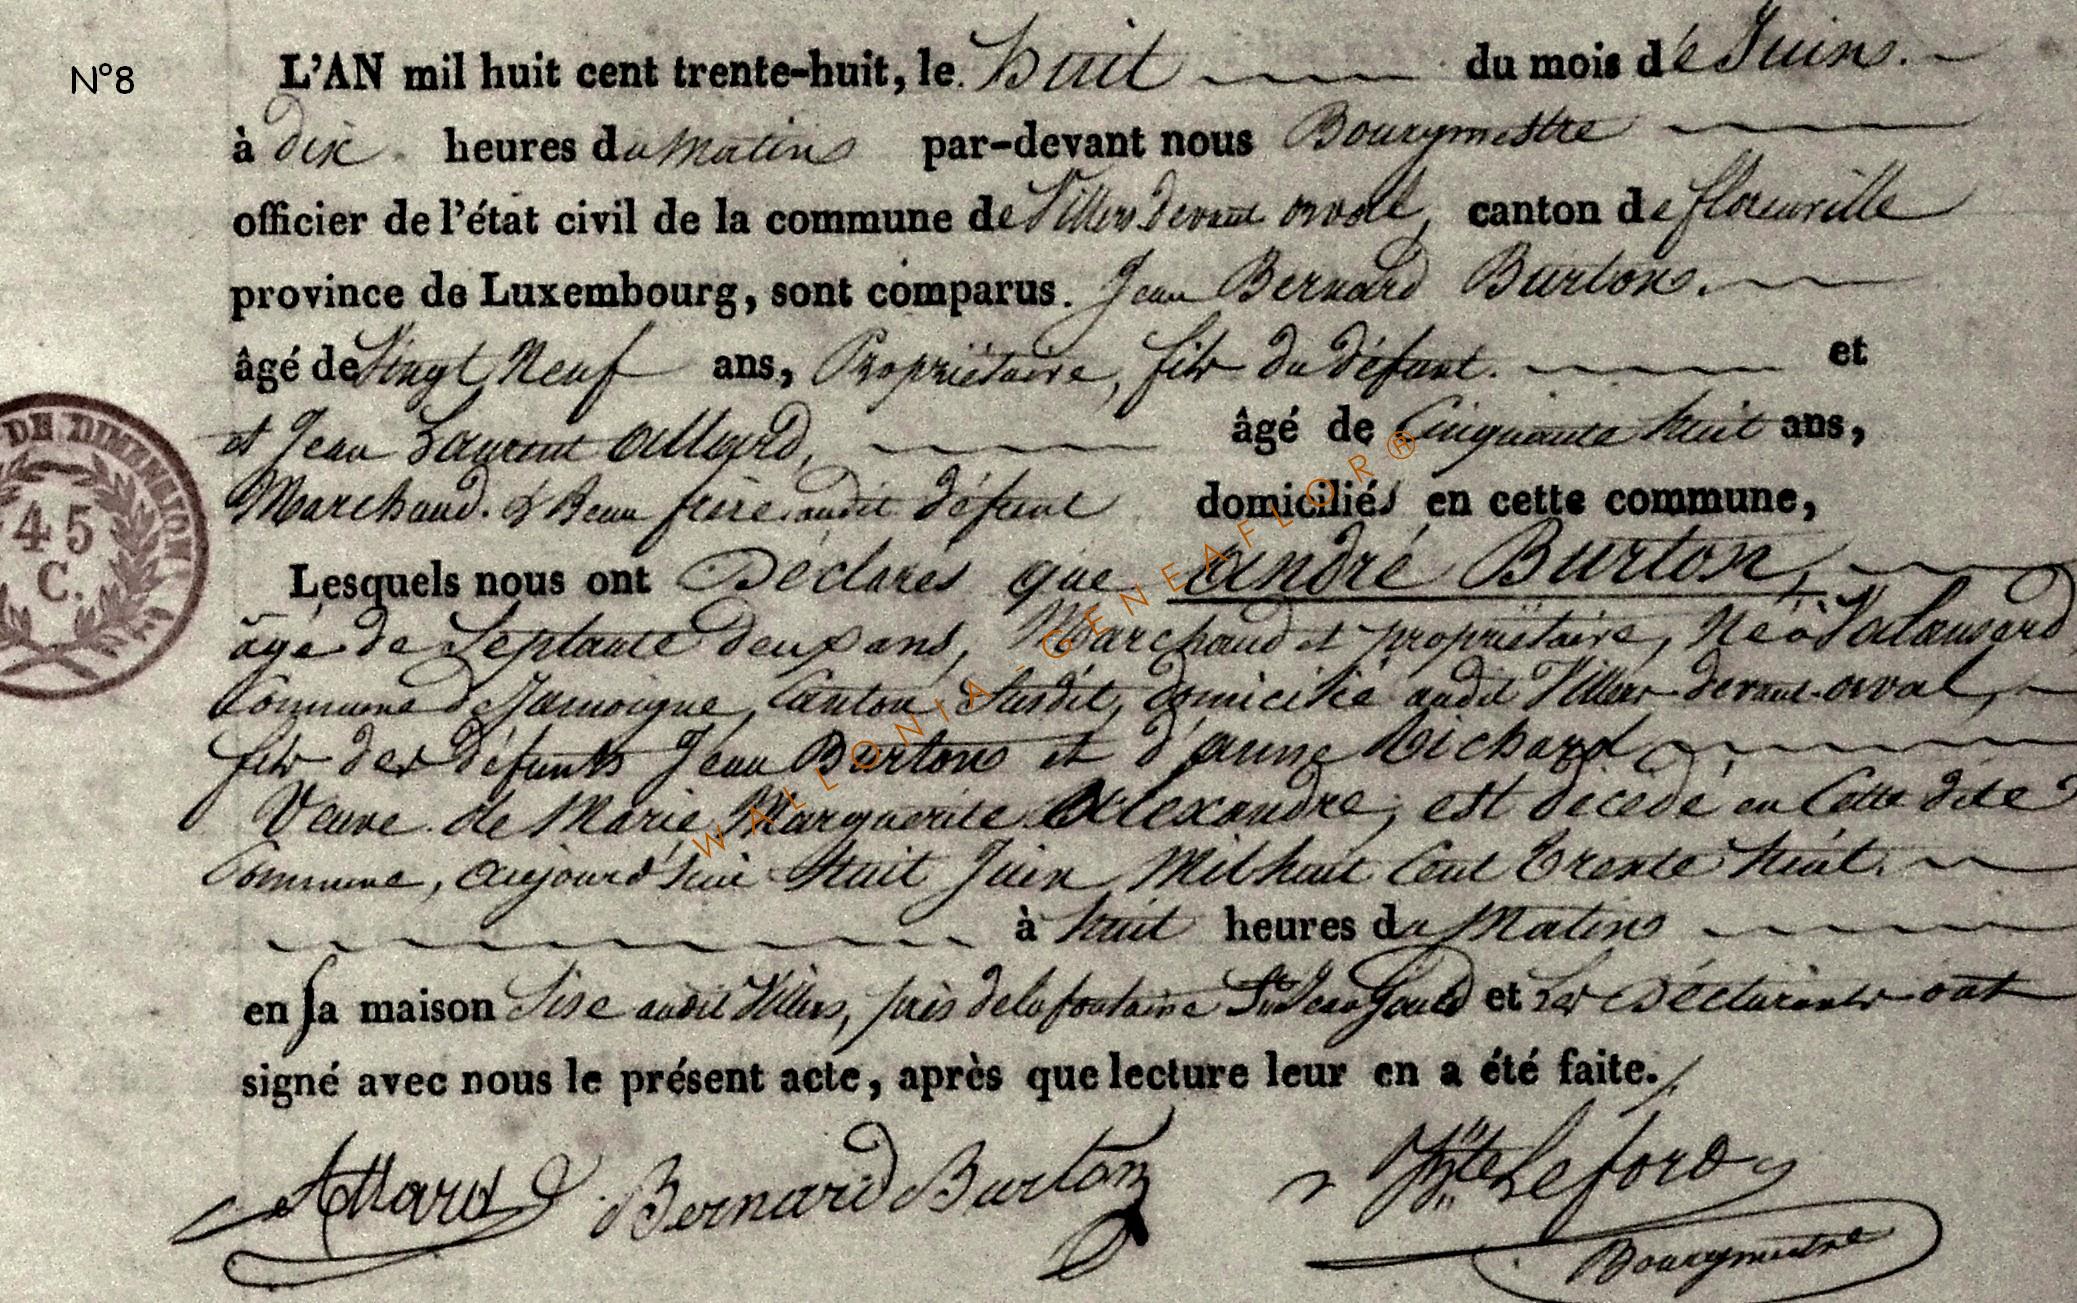 N°8
L'AN mil huit cent trente-huit, le huit du mois de Juin.
à dix heures du matin par-devant nous Bourgmestre
officier de l'état civil de la commune de Villers devant orval, canton de florenville
province de Luxembourg, sont comparus. Jean Bernard Burton.
âgé de Vingt Neuf ans, Propriétaire, fils du défunt. et
et Jean Laurent Allard, âgé de Cinquante huit ans,
Marchand. & Beau frère audit défunt domiciliés en cette commune,
Lesquels nous ont Déclarés que andré Burton,
âgé de Septante deux ans, Marchand et propriétaire, Né à Valansard
Commune de Jamoigne, Canton Susdit, domicilié audit Villers devant-orval,
fils des défunts Jean Burton et d'anne Richard
Veuve de Marie Marguerite Alexandre, est décédé en Cette dite
Commune, aujourd'hui huit Juin Mil huit Cent Trente huit.
à huit heures du Matin
en sa maison Sise audit Villers, près de la fontaine St Jean et Les Déclarants ont
signé avec nous le présent acte, après que lecture leur en a été faite.
Allard Bernard Burton Lefort
Bourgmestre
DE DIMENSION
45
C.
WALLONIA-GENEAFLOR®